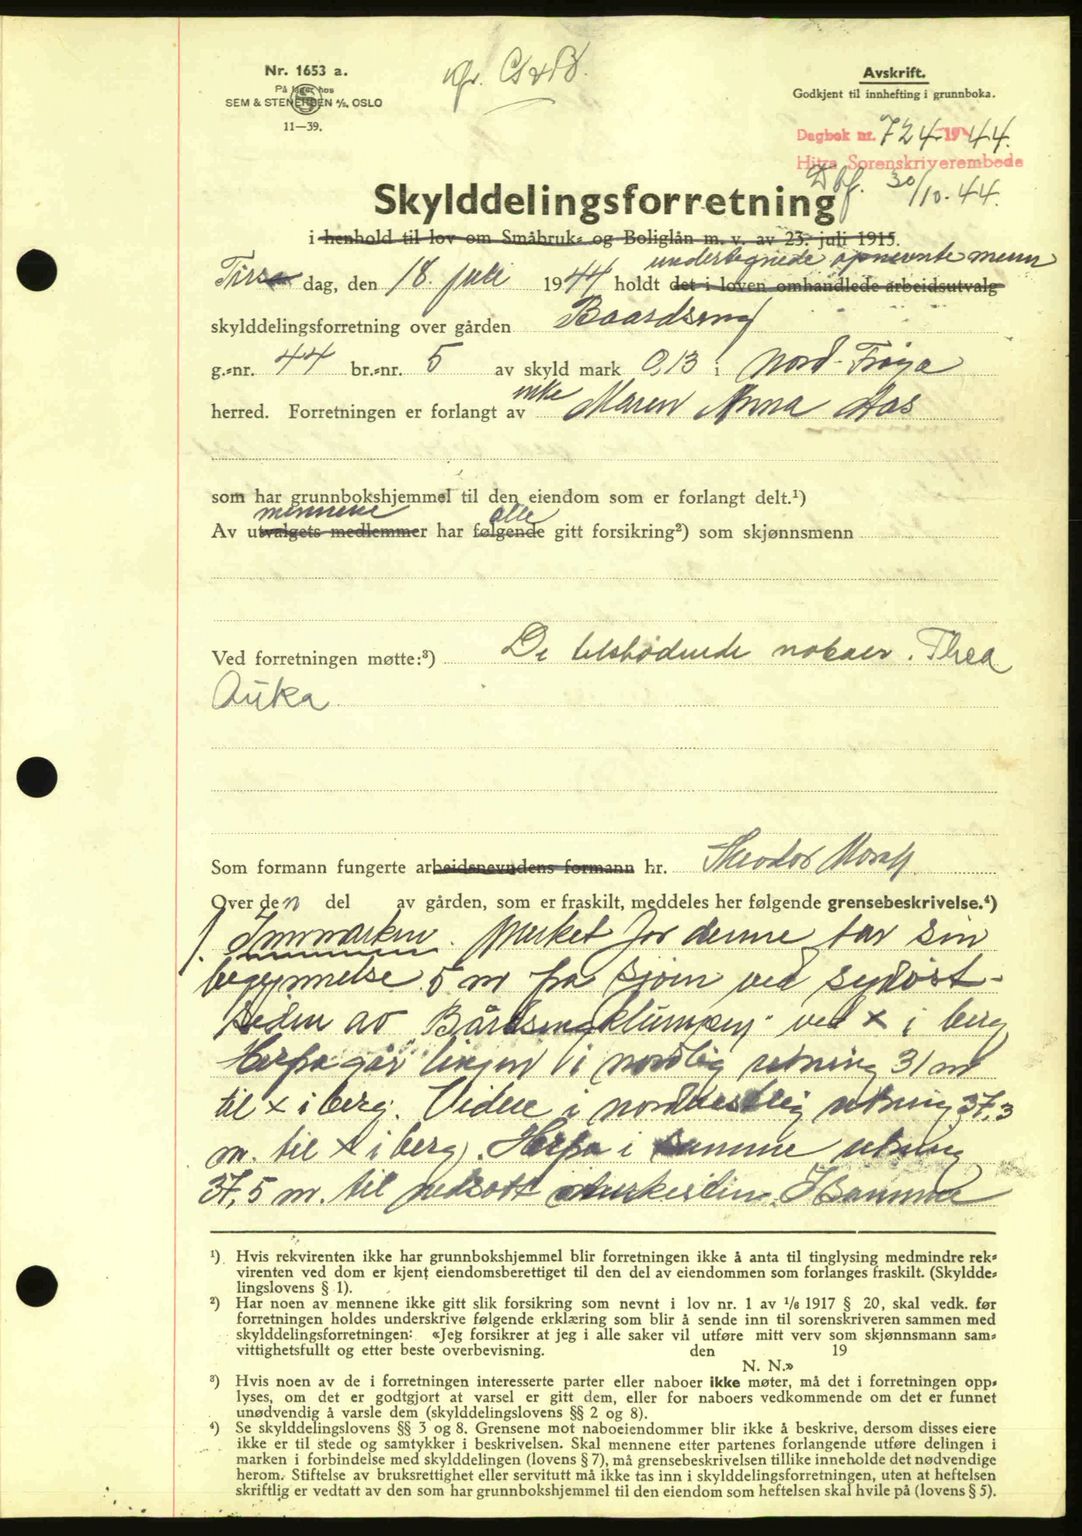 Nr. 1653 a.
På lager hos
SEM & STENERSEN A/S, OSLO
11—39.
Avskrift.
Godkjent til innhefting i grunnboka.
Dagbok nr. 724 1944.
Hitra Sorenskriverembede
Dbf. 30/10-44.
Skylddelingsforretning
i henhold til lov om Småbruk- og Boliglån m. v. av 23. juli 1915.
undertegnede opnevnte menn
Tirsdag, den 18. juli 1944 holdt det i loven omhandlede arbeidsutvalg
skylddelingsforretning over gården Baardseng
g.-nr. 44 br.-nr. 5 av skyld mark 0,13 i Nord-Frøya
herred. Forretningen er forlangt av enke Maren Anna Aas
som har grunnbokshjemmel til den eiendom som er forlangt delt.¹)
mennene alle
Av utvalgets medlemmer har følgende gitt forsikring²) som skjønnsmenn
Ved forretningen møtte:³) De tilstødende naboer. Thea
Auka
Som formann fungerte arbeidsnevndens formann hr. Theodor
Over den del av gården, som er fraskilt, meddeles her følgende grensebeskrivelse.⁴)
1. Innmarken. Merket for denne tar sin
begynnelse 5 m fra sjøen ved sydøst-
siden av Bårdsengklumpen ved x i berg
Herfra går linjen i nordlig retning 31 m
til x i berg. Videre i nordvestlig retning 37,3
m. til x i berg. Herfra i samme retning
37,5 m. til nedsatt merkesten. I samme
¹) Hvis rekvirenten ikke har grunnbokshjemmel blir forretningen ikke å anta til tinglysing medmindre rek-
virenten ved dom er kjent eiendomsberettiget til den del av eiendommen som forlanges fraskilt. (Skyldde-
lingslovens § 1).
²) Har noen av mennene ikke gitt slik forsikring som nevnt i lov nr. 1 av 1/6 1917 § 20, skal vedk. før
forretningen holdes underskrive følgende erklæring som blir å sende inn til sorenskriveren sammen med
skylddelingsforretningen: «Jeg forsikrer at jeg i alle saker vil utføre mitt verv som skjønnsmann sam-
vittighetsfullt og etter beste overbevisning. den 19
N. N.»
³) Hvis noen av de i forretningen interesserte parter eller naboer ikke møter, må det i forretningen opp-
lyses, om det er godtgjort at varsel er gitt dem, eller for naboers vedkommende om det er funnet
unødvendig å varsle dem (skylddelingslovens §§ 2 og 8).
⁴) Se skylddelingslovens §§ 3 og 8. Grensene mot naboeiendommer blir ikke å beskrive, dersom disses eiere
ikke er til stede og samtykker i beskrivelsen. Skal mennene etter partenes forlangende utføre delingen i
marken i forbindelse med skylddelingen (lovens § 7), må grensebeskrivelsen tillike inneholde det nødvendige
herom. Stiftelse av bruksrettighet eller servitutt må ikke tas inn i skylddelingsforretningen, uten at heftelsen
skriftlig er vedtatt av den som har grunnbokshjemmel til den eiendom som heftelsen skal hvile på (lovens § 5).